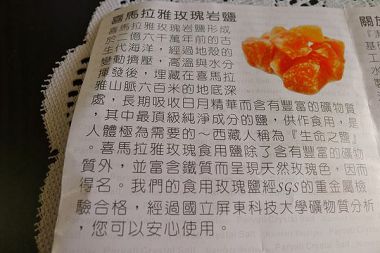 喜馬拉雅玫瑰岩鹽
喜馬拉雅玫瑰岩鹽形成
於二億六千萬年前的古
生代海洋，經過地殼的
變動擠壓，高溫與水分
揮發後，埋藏在喜馬拉
雅山脈六百米的地底深
處，長期吸收日月精華而含有豐富的礦物質
，其中最頂級純淨成分的鹽，供作食用，是
人體極為需要的～西藏人稱為『生命之鹽』
。喜馬拉雅玫瑰食用鹽除了含有豐富的礦物
質外，並富含鐵質而呈現天然玫瑰色，因而
得名。我們的食用玫瑰鹽經SGS的重金屬檢
驗合格，經過國立屏東科技大學礦物質分析
，您可以安心使用。